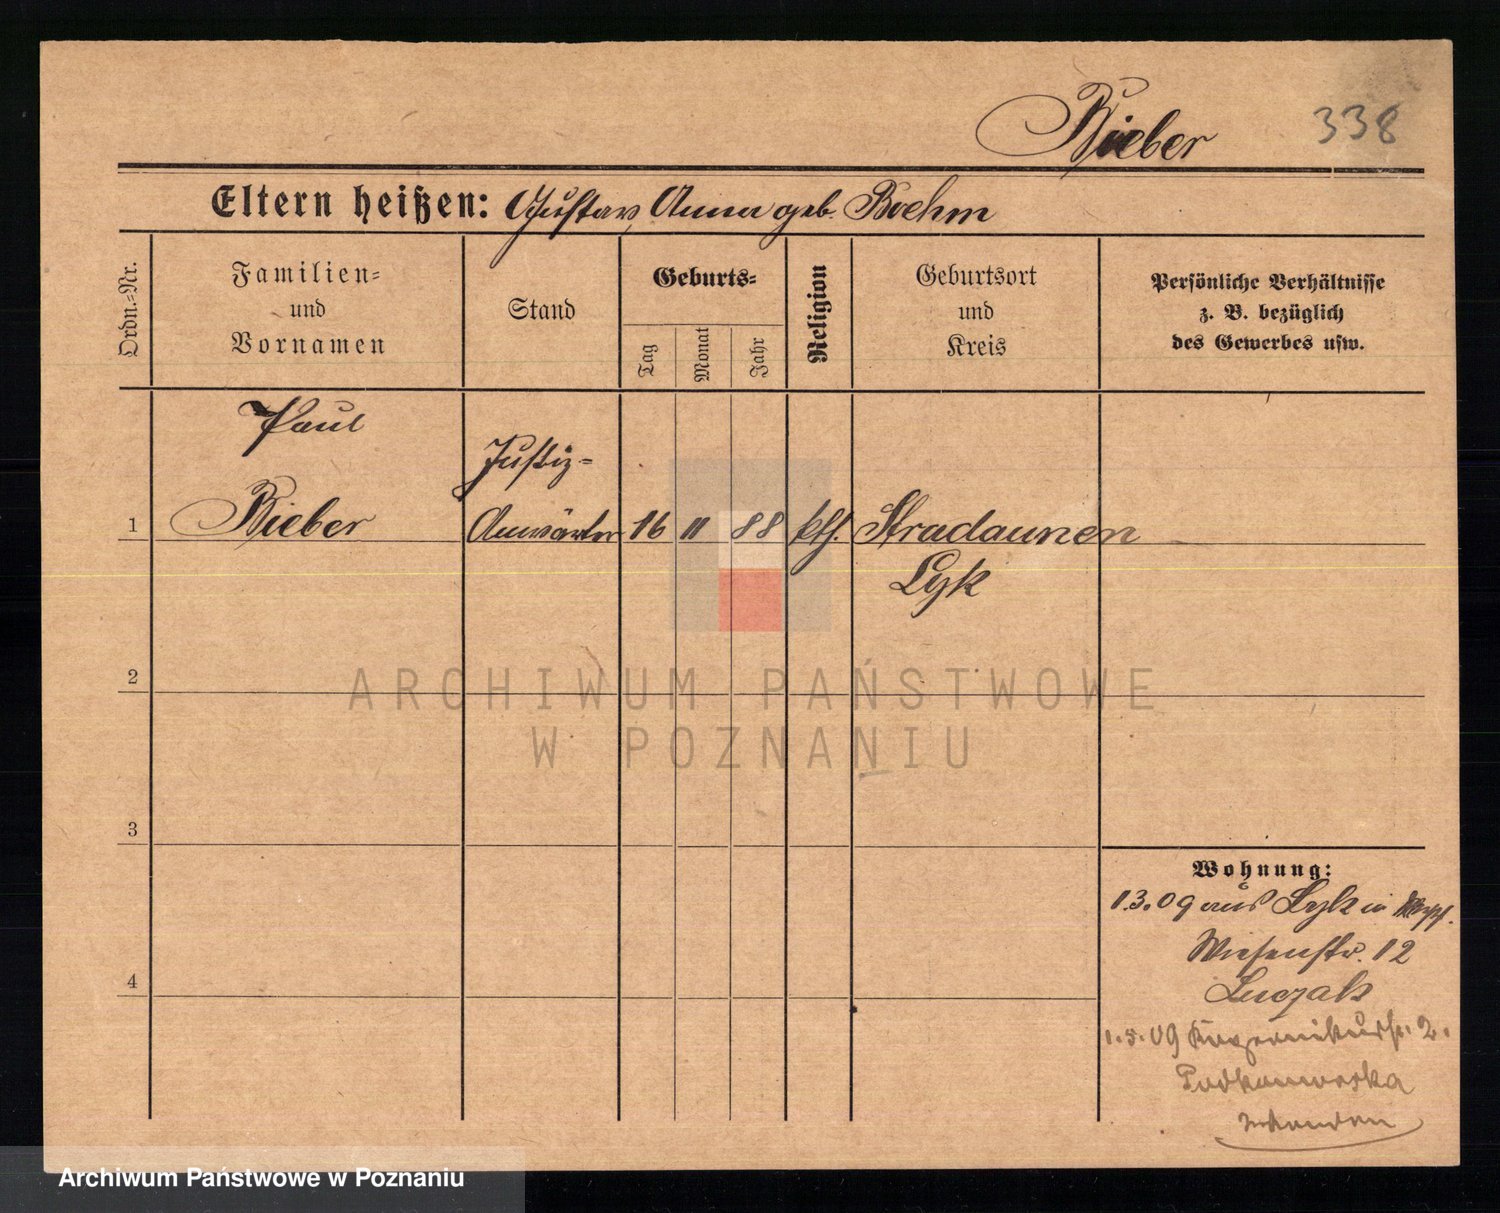 Bieber 338
Eltern heißen: Gustav, Anna geb. Boehm
Ordn.=Nr.
Familien=
und
Vornamen
Stand
Geburts=
Tag
Monat
Jahr
Religion
Geburtsort
und
Kreis
Persönliche Verhältnisse
z. B. bezüglich
des Gewerbes usw.
Paul
Justiz=
1 Bieber Anwärter 16 11 88 kth. Stradaunen
Lyk
2
ARCHIWUM PAŃSTWOWE
W POZNANIU
3
Wohnung:
1.3.09 aus Lyk in
Wiesenstr. 12
Luczak
4
1.5.09 2.
Archiwum Państwowe w Poznaniu